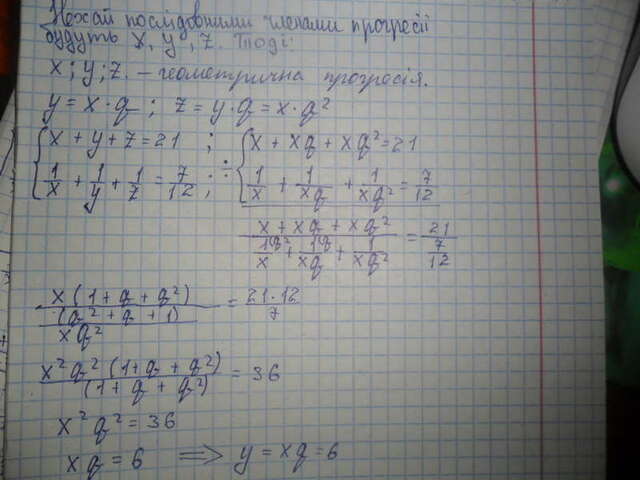 Нехай послідовними членами прогресії
будуть x, y, z. Тоді:
x; y; z. – геометрична прогресія.
y = x · q ; z = y · q = x · q²
{ x + y + z = 21 ; { x + xq + xq² = 21
{ 1/x + 1/y + 1/z = 7/12 ; : { 1/x + 1/xq + 1/xq² = 7/12
(x + xq + xq²) / (1q²/x + 1q/xq + 1/xq²) = 21 / (7/12)
x(1 + q + q²) / ((q² + q + 1) / xq²) = 21 · 12 / 7
x²q²(1 + q + q²) / (1 + q + q²) = 36
x²q² = 36
xq = 6 ⟹ y = xq = 6